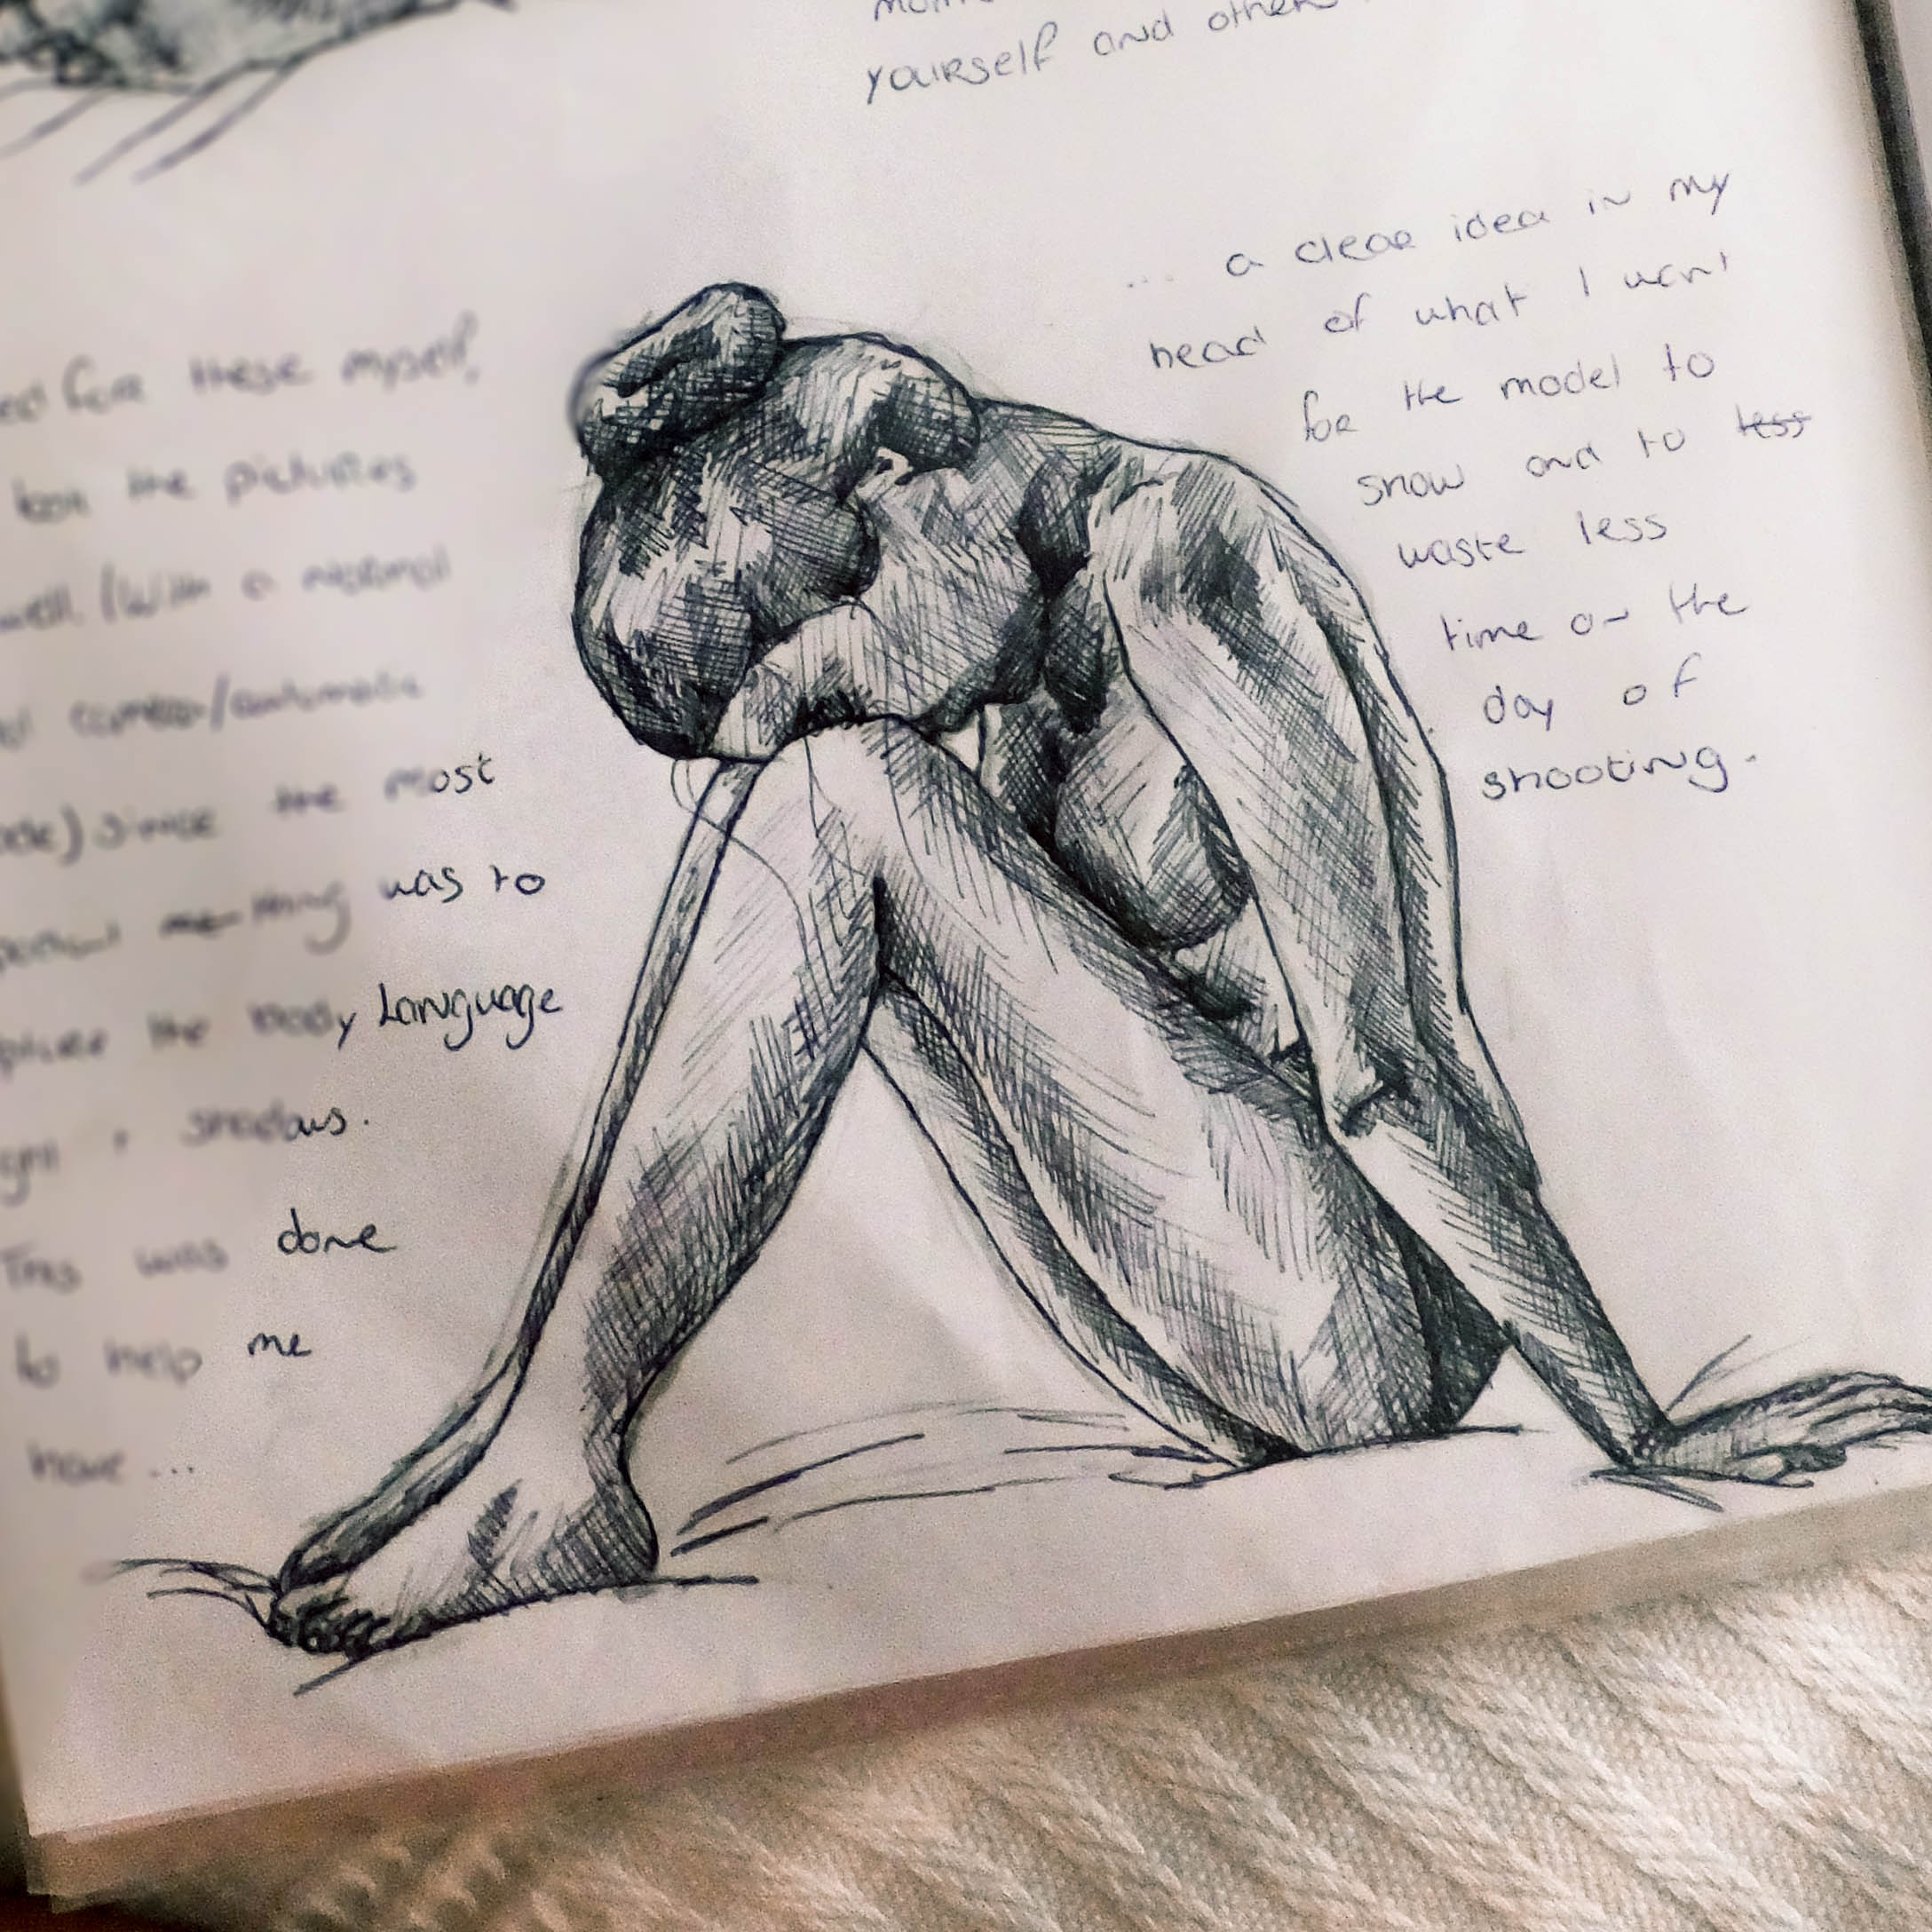 yourself and other
ed for these myself,
the pictures
well. (with a normal
camera/automatic
since the most
thing was to
the body language
shadows.
This was done
to help me
have ...
... a clear idea in my
head of what I want
for the model to
show and to less
waste less
time on the
day of
shooting.